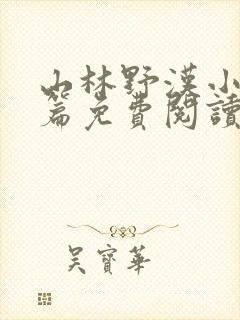 山林野漢小
篇免費閱讀
吴寶華